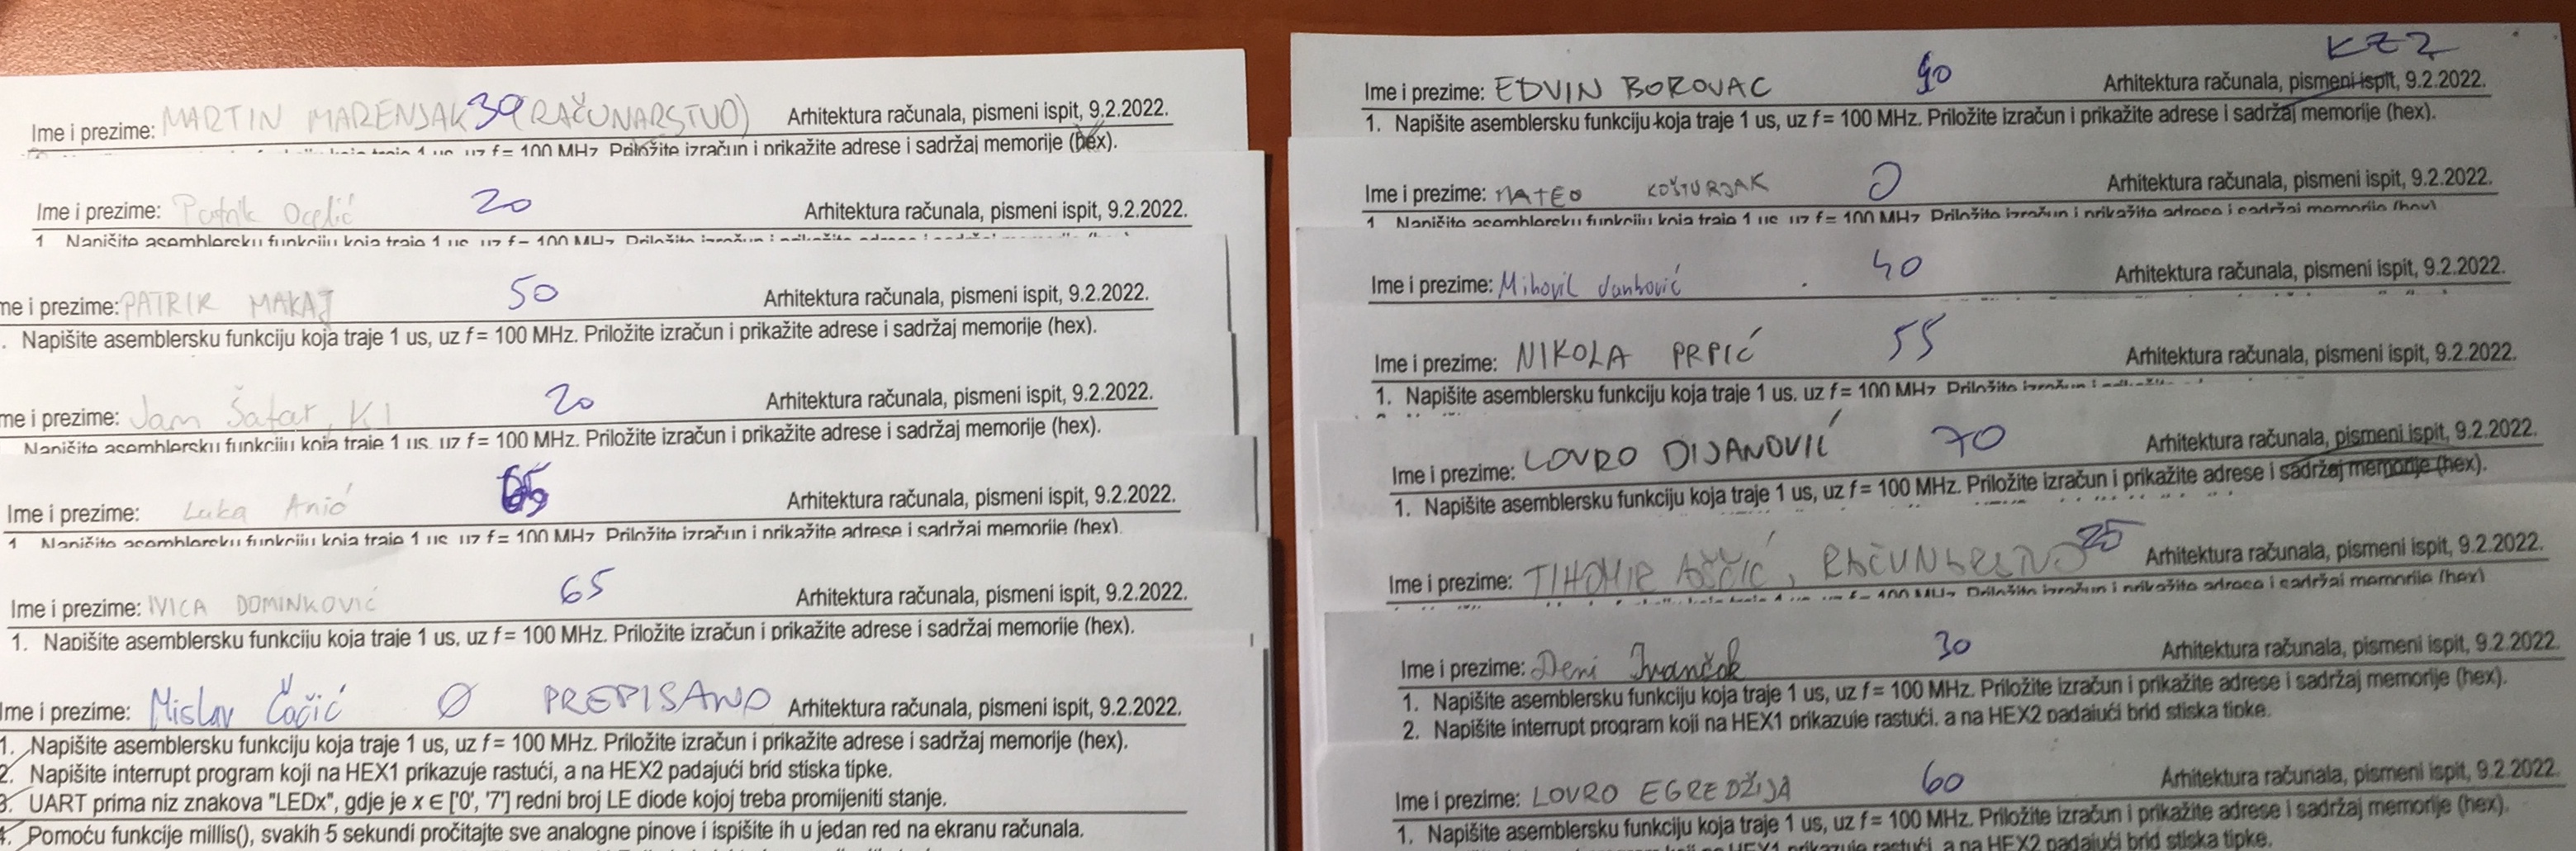 Ime i prezime: MARTIN MARENJAK 30 (RAČUNARSTVO) Arhitektura računala, pismeni ispit, 9.2.2022.
traje 1 us, uz f = 100 MHz. Priložite izračun i prikažite adrese i sadržaj memorije (hex).
Ime i prezime: Patrik Ocelić 20 Arhitektura računala, pismeni ispit, 9.2.2022.
1. Napišite asemblersku funkciju koja traje 1 us, uz f = 100 MHz. Priložite izračun i prikažite adrese i sadržaj
me i prezime: PATRIK MAKAJ 50 Arhitektura računala, pismeni ispit, 9.2.2022.
. Napišite asemblersku funkciju koja traje 1 us, uz f = 100 MHz. Priložite izračun i prikažite adrese i sadržaj memorije (hex).
me i prezime: Jam Šafar, K1 20 Arhitektura računala, pismeni ispit, 9.2.2022.
Napišite asemblersku funkciju koja traje 1 us, uz f = 100 MHz. Priložite izračun i prikažite adrese i sadržaj memorije (hex).
Ime i prezime: Luka Anić 65 Arhitektura računala, pismeni ispit, 9.2.2022.
1. Napišite asemblersku funkciju koja traje 1 us, uz f = 100 MHz. Priložite izračun i prikažite adrese i sadržaj memorije (hex).
Ime i prezime: IVICA DOMINKOVIĆ 65 Arhitektura računala, pismeni ispit, 9.2.2022.
1. Napišite asemblersku funkciju koja traje 1 us, uz f = 100 MHz. Priložite izračun i prikažite adrese i sadržaj memorije (hex).
Ime i prezime: Mislav Čačić 0 PREPISANO Arhitektura računala, pismeni ispit, 9.2.2022.
1. Napišite asemblersku funkciju koja traje 1 us, uz f = 100 MHz. Priložite izračun i prikažite adrese i sadržaj memorije (hex).
2. Napišite interrupt program koji na HEX1 prikazuje rastući, a na HEX2 padajući brid stiska tipke.
3. UART prima niz znakova "LEDx", gdje je x ∈ ['0', '7'] redni broj LE diode kojoj treba promijeniti stanje.
4. Pomoću funkcije millis(), svakih 5 sekundi pročitajte sve analogne pinove i ispišite ih u jedan red na ekranu računala.
KZ2
Ime i prezime: EDVIN BOROVAC 90 Arhitektura računala, pismeni ispit, 9.2.2022.
1. Napišite asemblersku funkciju koja traje 1 us, uz f = 100 MHz. Priložite izračun i prikažite adrese i sadržaj memorije (hex).
Ime i prezime: MATEO KOŠTURJAK 0 Arhitektura računala, pismeni ispit, 9.2.2022.
1 Napišite asemblersku funkciju koja traje 1 us, uz f = 100 MHz. Priložite izračun i prikažite adrese i sadržaj memorije (hex)
Ime i prezime: Mihovil Janković 40 Arhitektura računala, pismeni ispit, 9.2.2022.
Ime i prezime: NIKOLA PRPIĆ 55 Arhitektura računala, pismeni ispit, 9.2.2022.
1. Napišite asemblersku funkciju koja traje 1 us, uz f = 100 MHz. Priložite izračun i
Ime i prezime: LOVRO DIJANOVIĆ 70 Arhitektura računala, pismeni ispit, 9.2.2022.
1. Napišite asemblersku funkciju koja traje 1 us, uz f = 100 MHz. Priložite izračun i prikažite adrese i sadržaj memorije (hex).
Ime i prezime: TIHOMIR RAČUNARSTVO 25 Arhitektura računala, pismeni ispit, 9.2.2022.
f = 100 MHz. Priložite izračun i prikažite adrese i sadržaj memorije (hex)
Ime i prezime: Deni Ivančok 30 Arhitektura računala, pismeni ispit, 9.2.2022.
1. Napišite asemblersku funkciju koja traje 1 us, uz f = 100 MHz. Priložite izračun i prikažite adrese i sadržaj memorije (hex).
2. Napišite interrupt program koji na HEX1 prikazuje rastući, a na HEX2 padajući brid stiska tipke.
Ime i prezime: LOVRO EGREDŽIJA 60 Arhitektura računala, pismeni ispit, 9.2.2022.
1. Napišite asemblersku funkciju koja traje 1 us, uz f = 100 MHz. Priložite izračun i prikažite adrese i sadržaj memorije (hex).
HEX1 prikazuje rastući, a na HEX2 padajući brid stiska tipke.